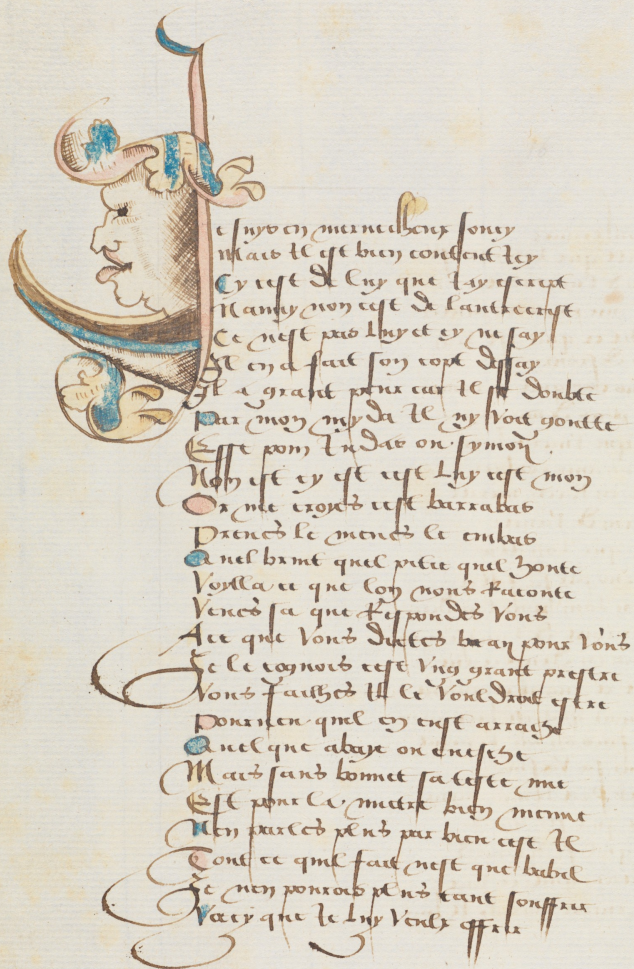 Je suys en merueilheux soucy
Mais Il est bien content Icy
Cy cest de luy que Iay escript
Nanny non cest de lantecrist
Ce nest pas luy et cy ne scay
Il en a fait son copt dessay
Il a grant peur car Il se doubte
Par mon myda Il ny voit goutte
Esse pom Iudas ou symon
Non est cy est cest luy cest mon
Or me croyes cest barrabas
Prenes le menes le embas
Quel bruit quel pitie quel honte
Voylla ce que lon nous Raconte
Venes sa que Respondes vous
Ace que vous dictes beau pour vous
Je le cognois cest vng grant prestre
Vous failhes Il le vouldroit estre
Pourueu quil en eust
Quelque abaye ou euesche
Mais sans bonnet sa teste nue
Est pour la mectre bien menue
Nen parles plus par bieu cest Il
Tout ce quil fait nest que babil
Je nen pourois plus tant souffrir
Vecy que Ie luy veulx offrir